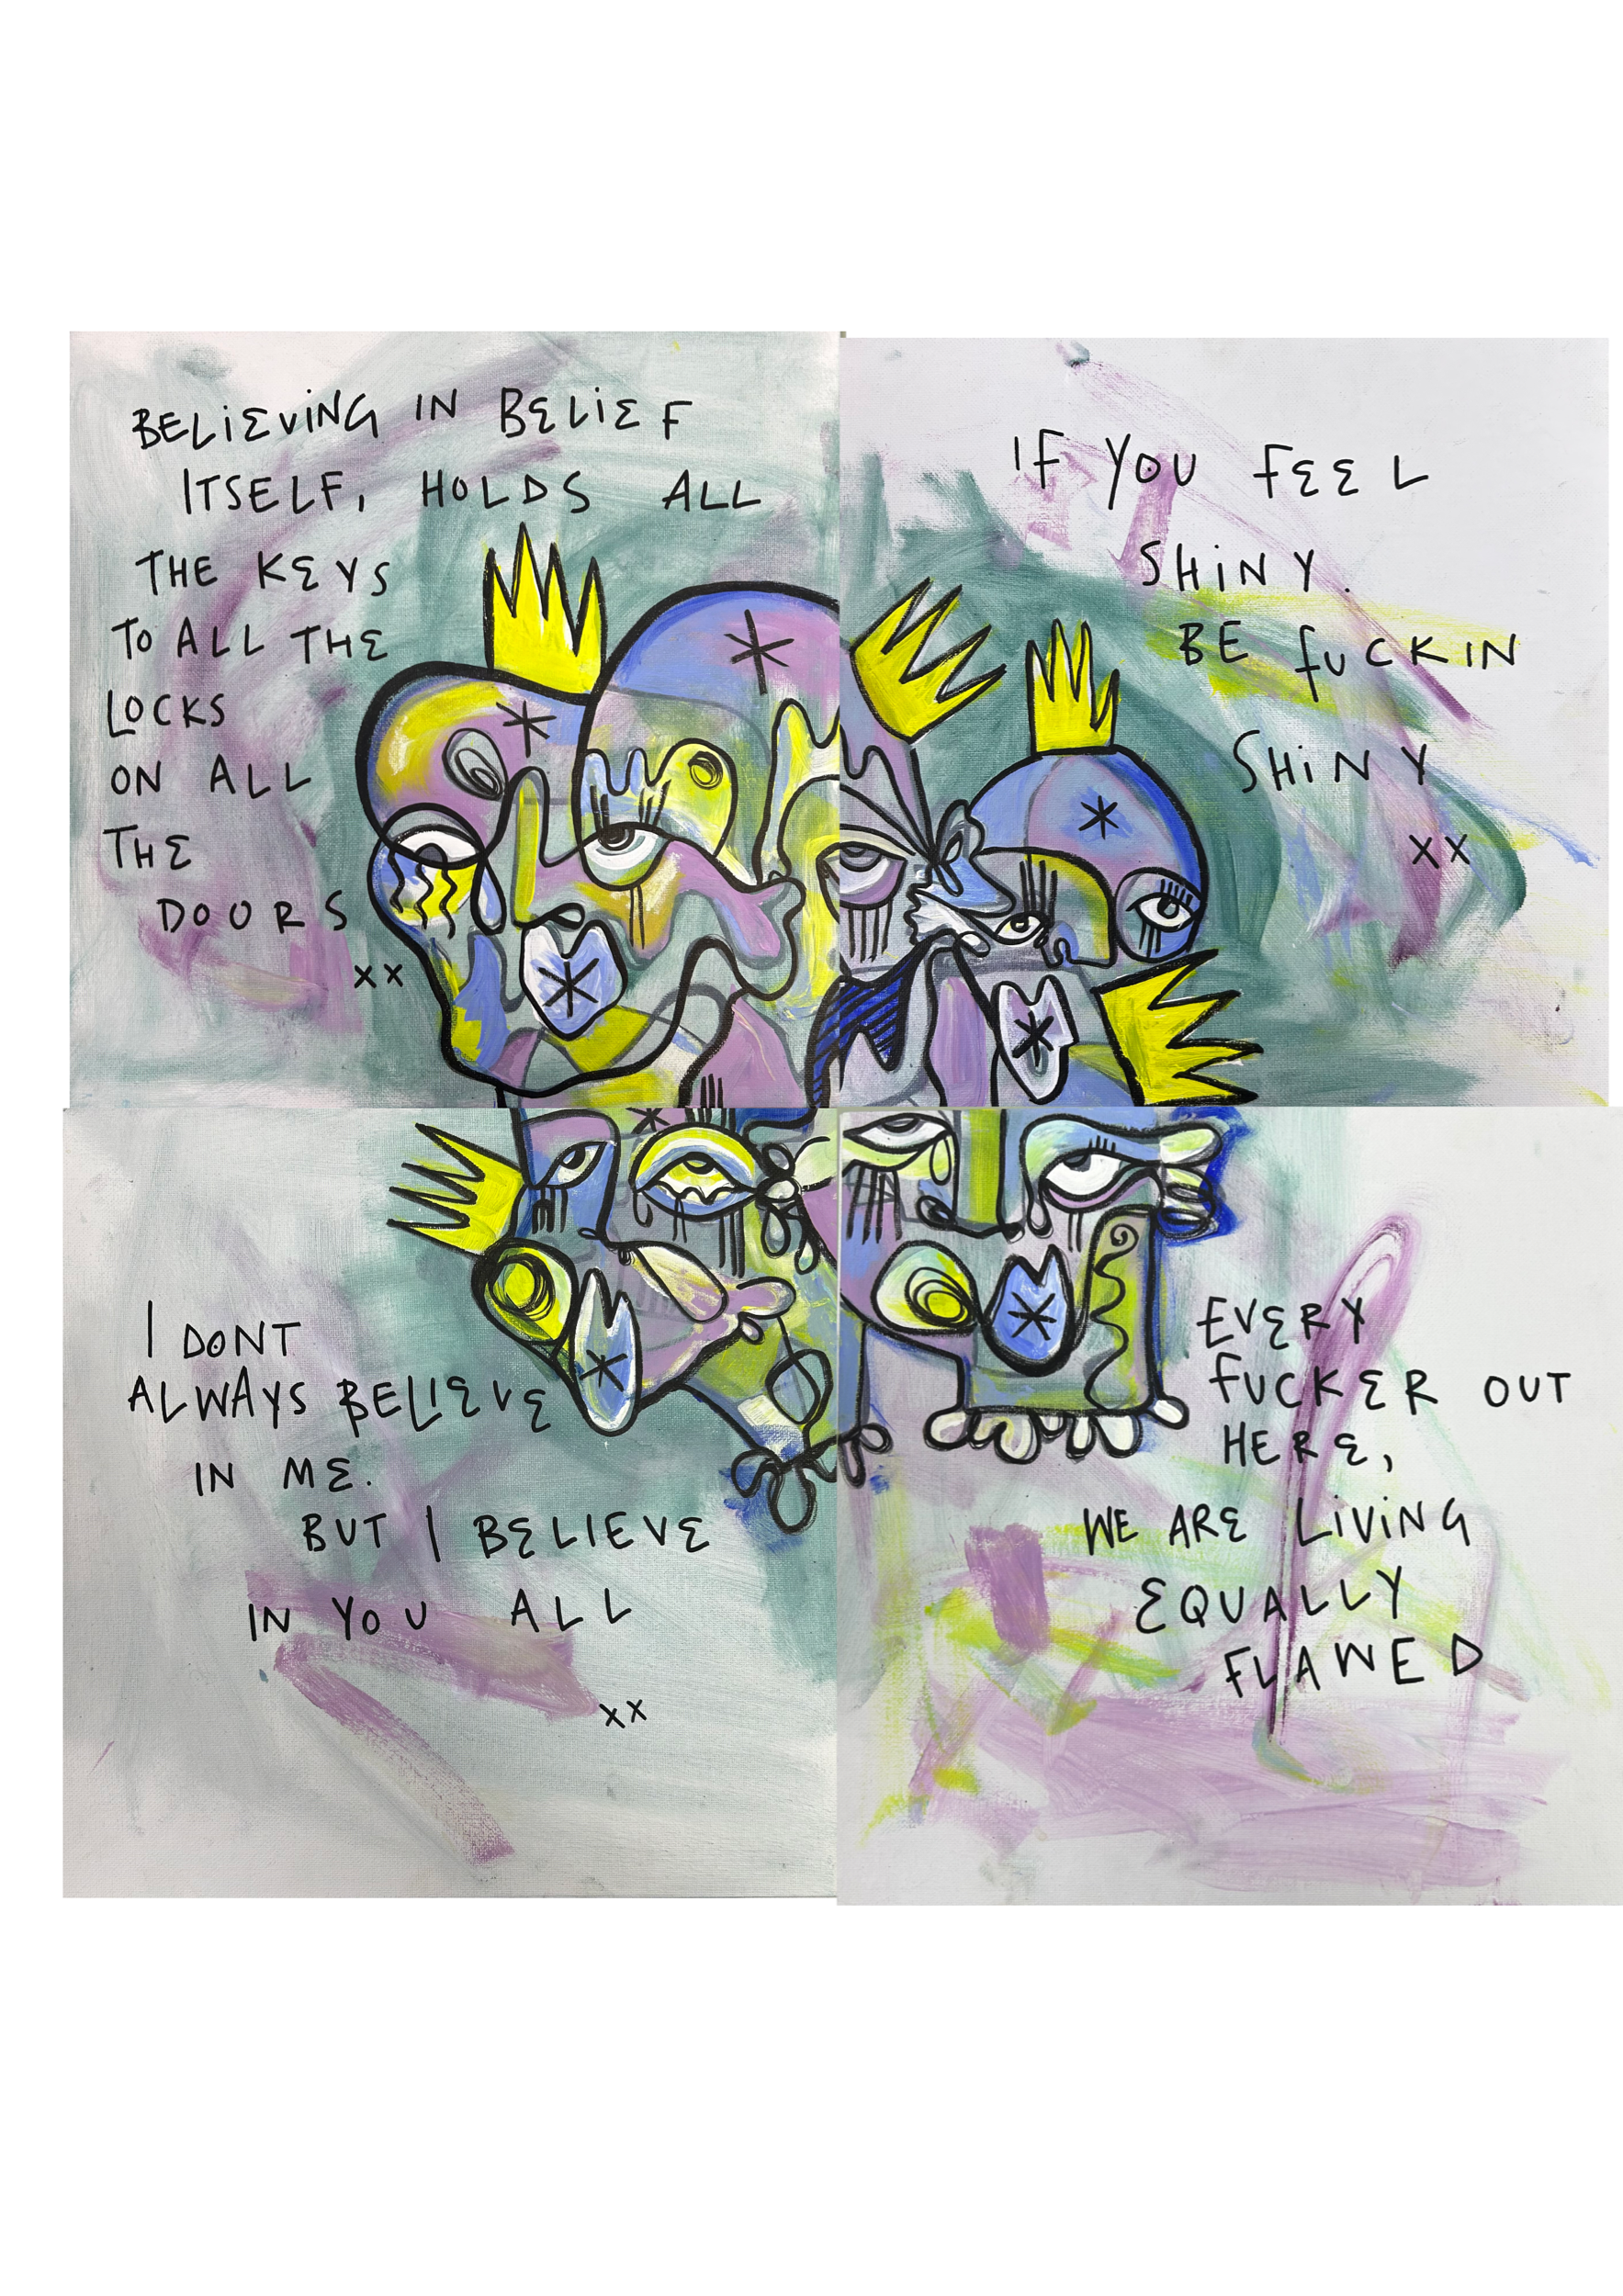 BELIEVING IN BELIEF
ITSELF, HOLDS ALL
THE KEYS
TO ALL THE
LOCKS
ON ALL
THE
DOORS
xx
IF YOU FEEL
SHINY.
BE FUCKIN
SHINY
xx
I DONT
ALWAYS BELIEVE
IN ME.
BUT I BELIEVE
IN YOU ALL
xx
EVERY
FUCKER OUT
HERE,
WE ARE LIVING
EQUALLY
FLAWED